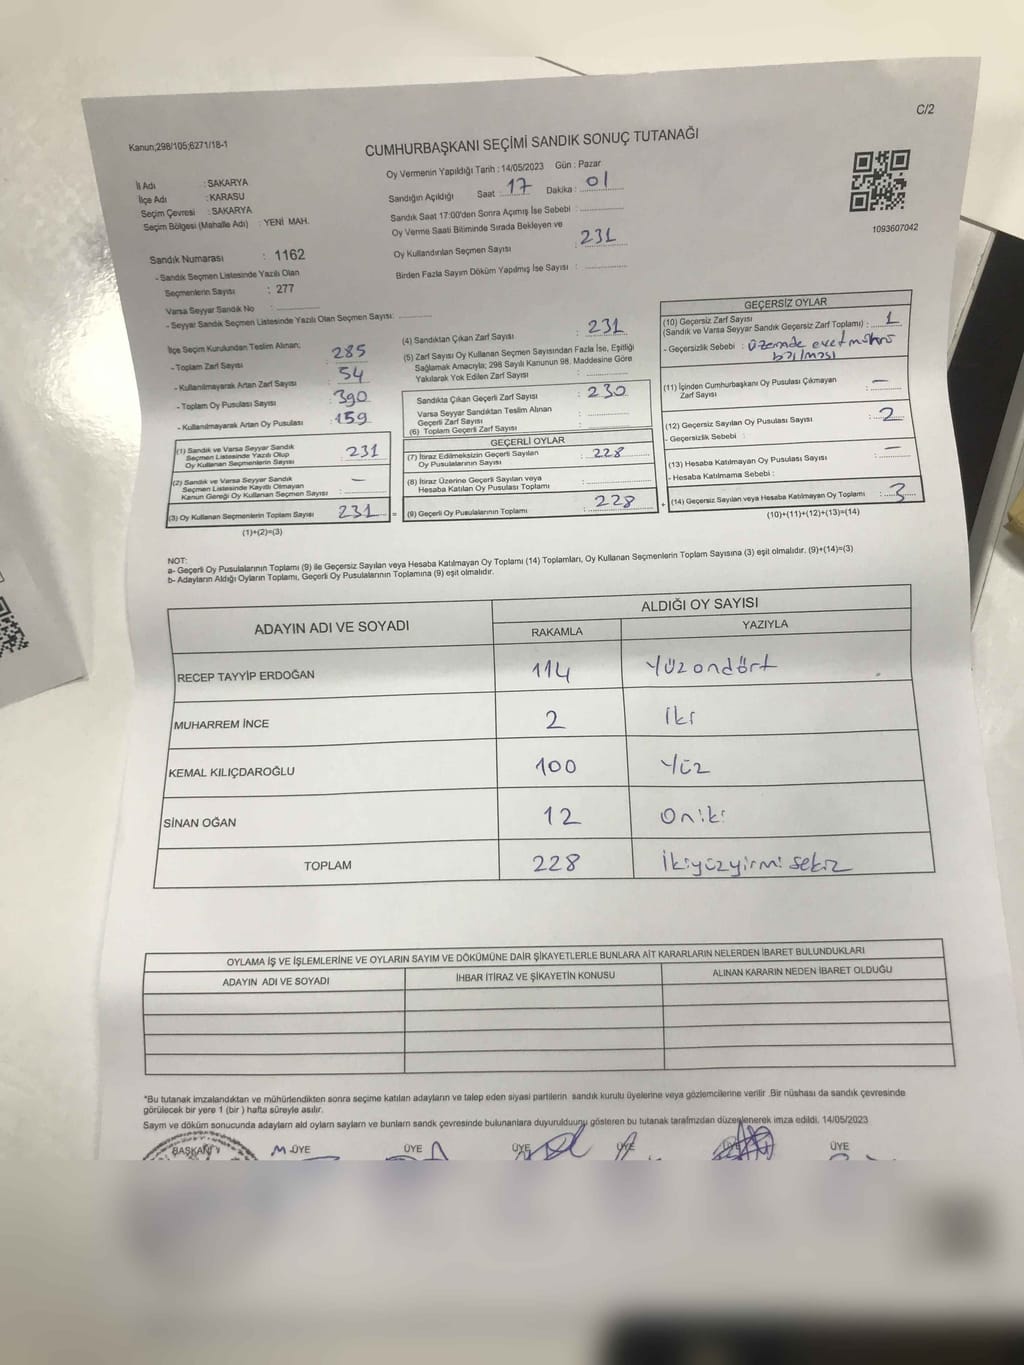 C/2
Kanun;298/105;6271/18-1
CUMHURBAŞKANI SEÇİMİ SANDIK SONUÇ TUTANAĞI
İl Adı : SAKARYA
İlçe Adı : KARASU
Seçim Çevresi : SAKARYA
Seçim Bölgesi (Mahalle Adı) : YENİ MAH.
Sandık Numarası : 1162
- Sandık Seçmen Listesinde Yazılı Olan
Seçmenlerin Sayısı : 277
Varsa Seyyar Sandık No :
- Seyyar Sandık Seçmen Listesinde Yazılı Olan Seçmen Sayısı:
Oy Vermenin Yapıldığı Tarih : 14/05/2023 Gün : Pazar
Sandığın Açıldığı Saat : 17 Dakika : 01
Sandık Saat 17:00'den Sonra Açımış İse Sebebi :
Oy Verme Saati Bitiminde Sırada Bekleyen ve
Oy Kullandırılan Seçmen Sayısı : 231
Birden Fazla Sayım Döküm Yapılmış İse Sayısı :
1093607042
İlçe Seçim Kurulundan Teslim Alınan;
- Toplam Zarf Sayısı : 285
- Kullanılmayarak Artan Zarf Sayısı : 54
- Toplam Oy Pusulası Sayısı : 390
- Kullanılmayarak Artan Oy Pusulası : 159
(1) Sandık ve Varsa Seyyar Sandık
Seçmen Listesinde Yazılı Olup
Oy Kullanan Seçmenlerin Sayısı : 231
(2) Sandık ve Varsa Seyyar Sandık
Seçmen Listesinde Kayıtlı Olmayan
Kanun Gereği Oy Kullanan Seçmen Sayısı : —
(3) Oy Kullanan Seçmenlerin Toplam Sayısı : 231 =
(1)+(2)=(3)
(4) Sandıktan Çıkan Zarf Sayısı : 231
(5) Zarf Sayısı Oy Kullanan Seçmen Sayısından Fazla İse, Eşitliği
Sağlamak Amacıyla; 298 Sayılı Kanunun 98. Maddesine Göre
Yakılarak Yok Edilen Zarf Sayısı :
Sandıkta Çıkan Geçerli Zarf Sayısı : 230
Varsa Seyyar Sandıktan Teslim Alınan
Geçerli Zarf Sayısı :
(6) Toplam Geçerli Zarf Sayısı :
GEÇERLİ OYLAR
(7) İtiraz Edilmeksizin Geçerli Sayılan
Oy Pusulalarının Sayısı : 228
(8) İtiraz Üzerine Geçerli Sayılan veya
Hesaba Katılan Oy Pusulası Toplamı :
(9) Geçerli Oy Pusulalarının Toplamı : 228 +
GEÇERSİZ OYLAR
(10) Geçersiz Zarf Sayısı
(Sandık ve Varsa Seyyar Sandık Geçersiz Zarf Toplamı) : 1
- Geçersizlik Sebebi : üzerinde evet mührü
basılması
(11) İçinden Cumhurbaşkanı Oy Pusulası Çıkmayan
Zarf Sayısı : —
(12) Geçersiz Sayılan Oy Pusulası Sayısı : 2
- Geçersizlik Sebebi :
(13) Hesaba Katılmayan Oy Pusulası Sayısı : —
- Hesaba Katılmama Sebebi :
(14) Geçersiz Sayılan veya Hesaba Katılmayan Oy Toplamı : 3
(10)+(11)+(12)+(13)=(14)
NOT:
a- Geçerli Oy Pusulalarının Toplamı (9) ile Geçersiz Sayılan veya Hesaba Katılmayan Oy Toplamı (14) Toplamları, Oy Kullanan Seçmenlerin Toplam Sayısına (3) eşit olmalıdır. (9)+(14)=(3)
b- Adayların Aldığı Oyların Toplamı, Geçerli Oy Pusulalarının Toplamına (9) eşit olmalıdır.
ADAYIN ADI VE SOYADI ALDIĞI OY SAYISI
RAKAMLA YAZIYLA
RECEP TAYYİP ERDOĞAN 114 Yüzondört
MUHARREM İNCE 2 iki
KEMAL KILIÇDAROĞLU 100 Yüz
SİNAN OĞAN 12 Oniki
TOPLAM 228 İkiyüzyirmisekiz
OYLAMA İŞ VE İŞLEMLERİNE VE OYLARIN SAYIM VE DÖKÜMÜNE DAİR ŞİKAYETLERLE BUNLARA AİT KARARLARIN NELERDEN İBARET BULUNDUKLARI
ADAYIN ADI VE SOYADI İHBAR İTİRAZ VE ŞİKAYETİN KONUSU ALINAN KARARIN NEDEN İBARET OLDUĞU
*Bu tutanak imzalandıktan ve mühürlendikten sonra seçime katılan adayların ve talep eden siyasi partilerin sandık kurulu üyelerine veya gözlemcilerine verilir .Bir nüshası da sandık çevresinde
görülecek bir yere 1 (bir ) hafta süreyle asılır.
Sayım ve döküm sonucunda adayların ald oyların sayların ve bunların sandk çevresinde bulunanlara duyurulduunu gösteren bu tutanak tarafmzdan düzenlenerek imza edildi. 14/05/2023
BAŞKAN ÜYE ÜYE ÜYE ÜYE ÜYE ÜYE